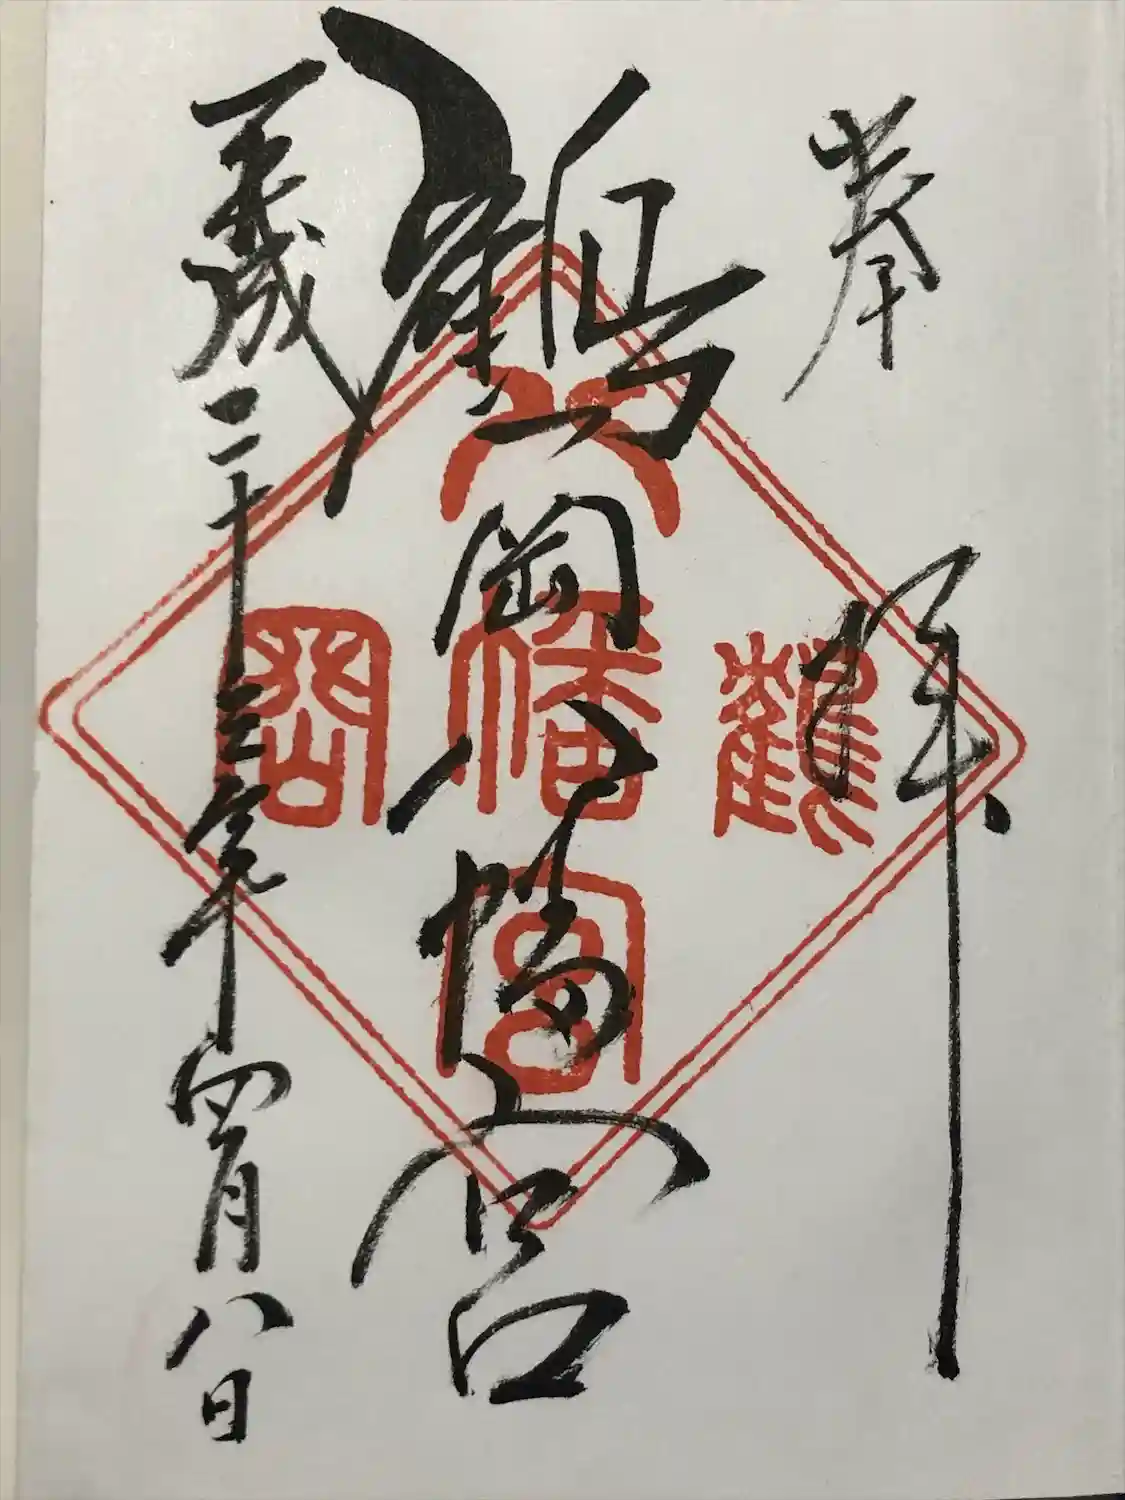 奉拝
鶴岡八幡宮
平成二十三年四月八日
鶴岡
八幡宮